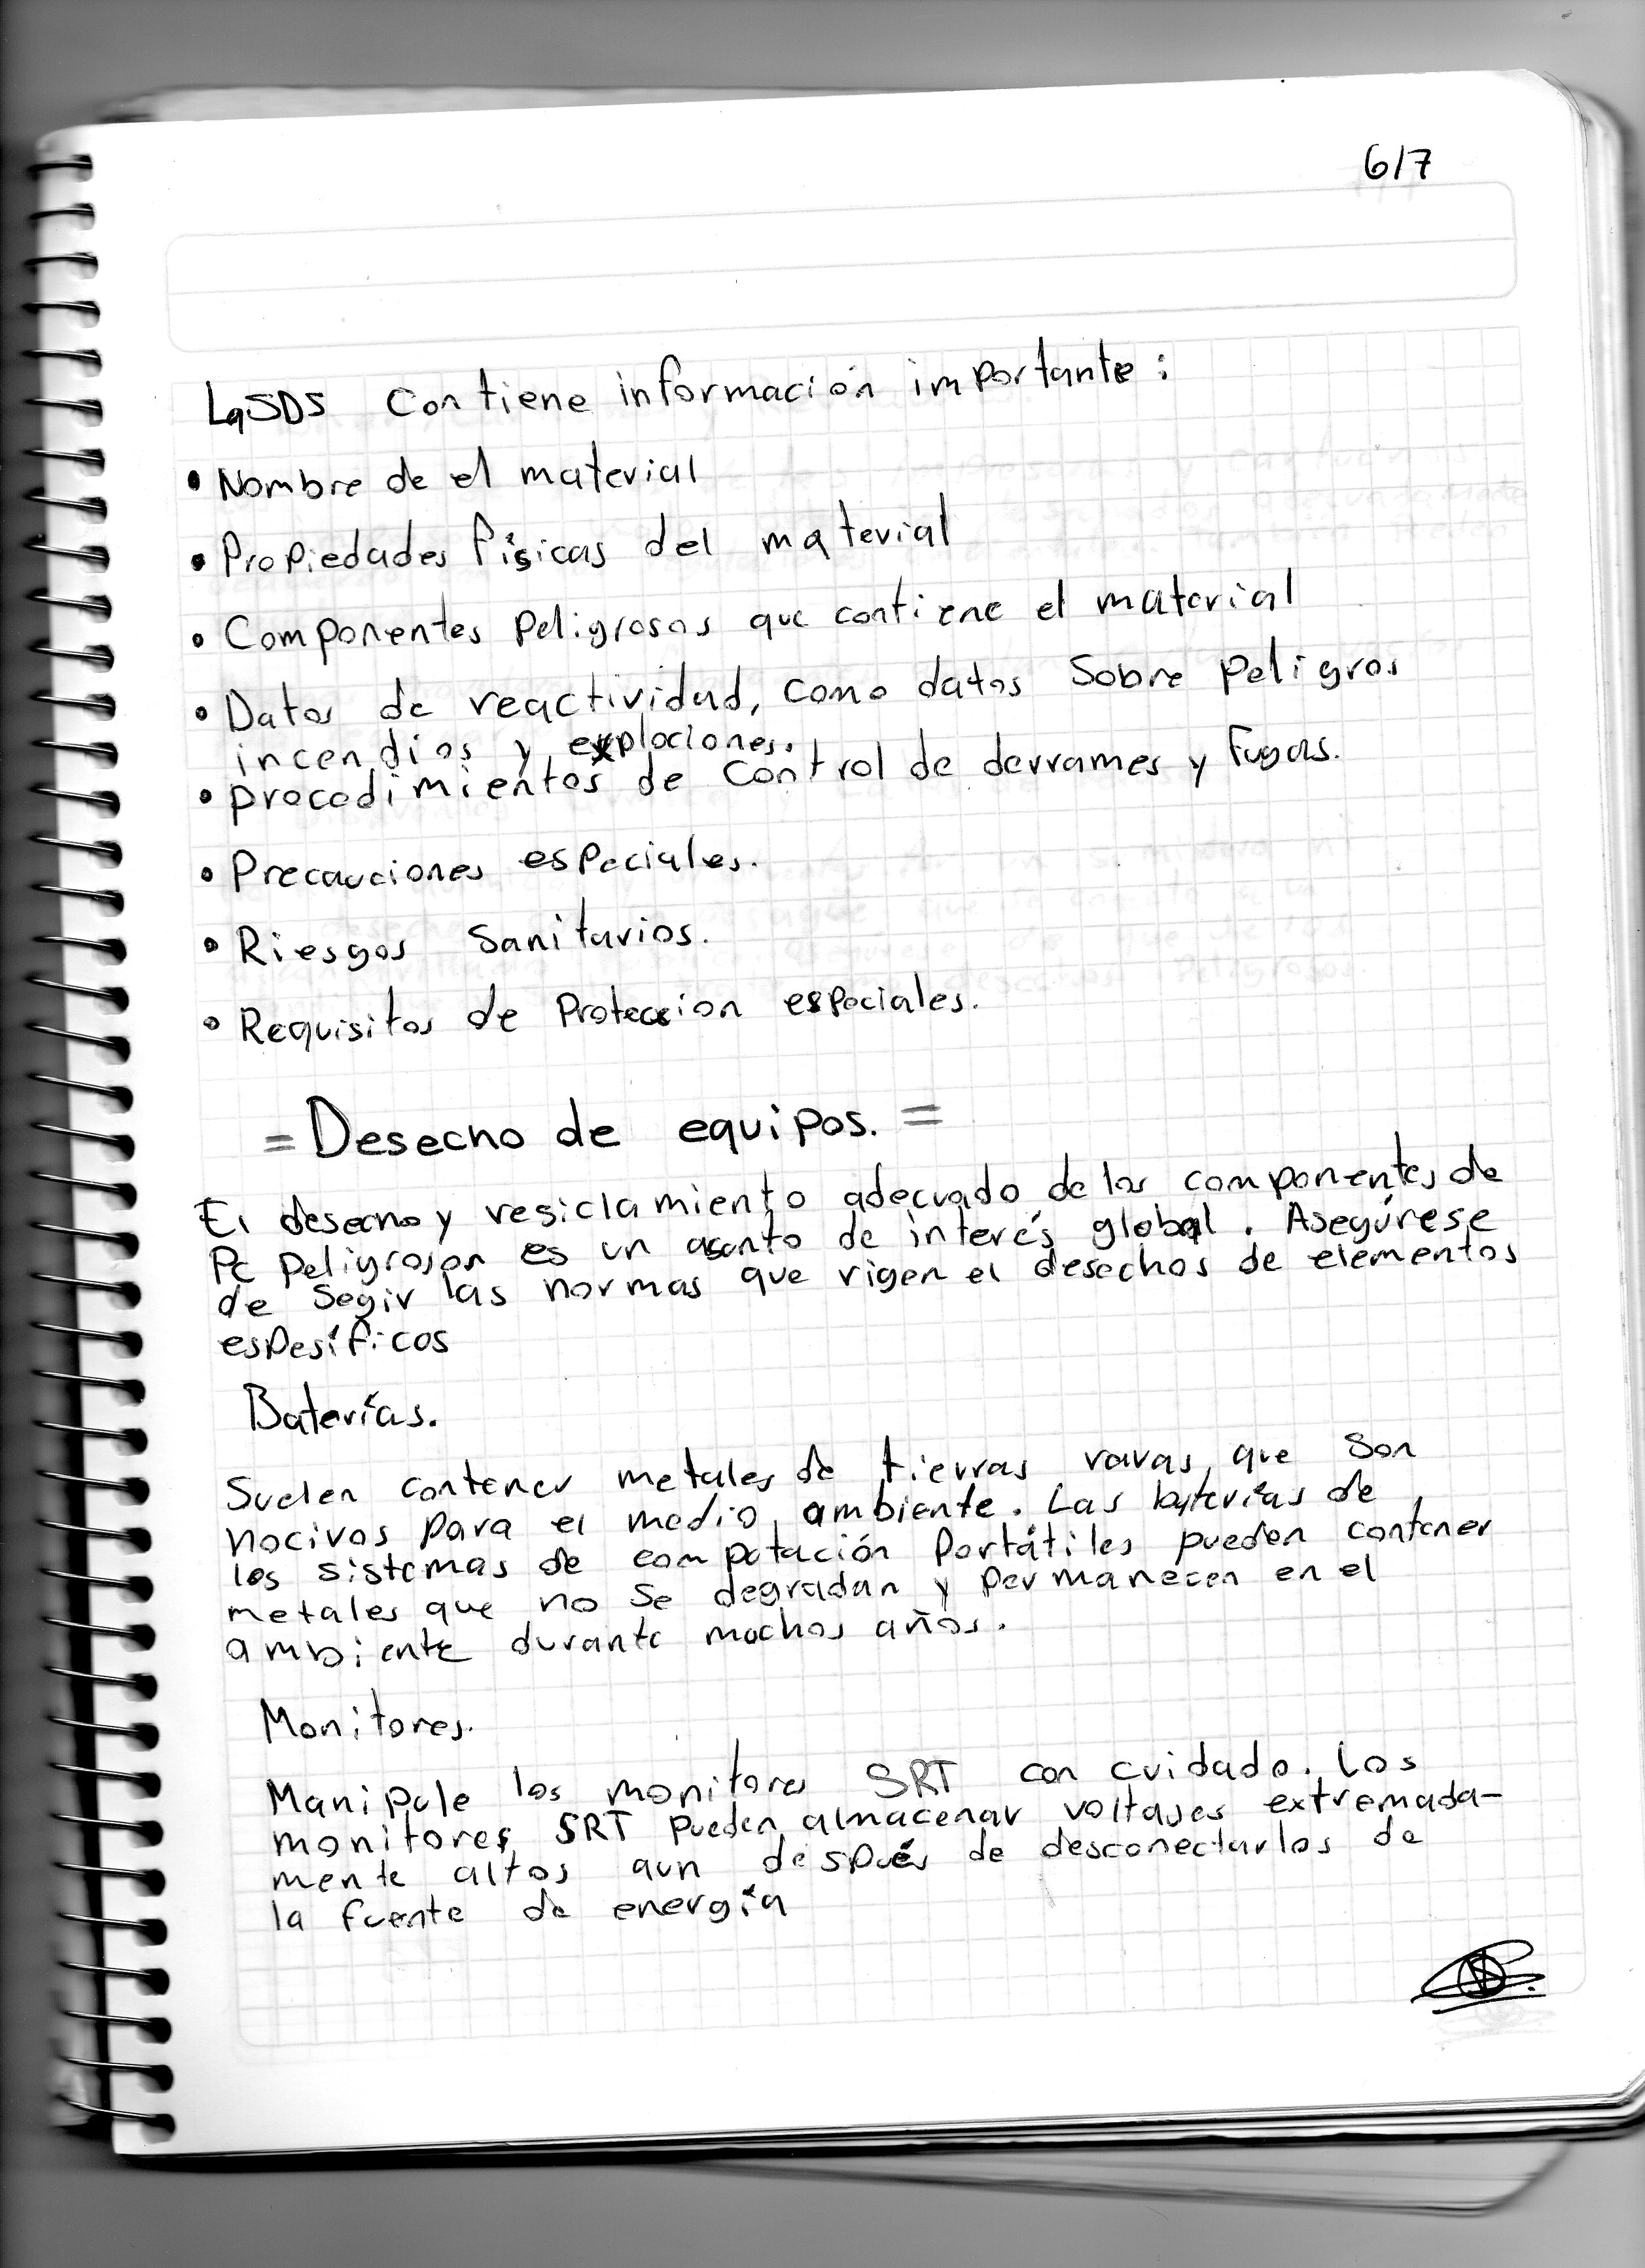 6/7
La SDS contiene información importante:
• Nombre de el material
• Propiedades físicas del material
• Componentes peligrosos que contiene el material
• Datos de reactividad, como datos sobre peligros
incendios y explociones.
• procedimientos de control de derrames y Fugas.
• Precauciones especiales.
• Riesgos sanitarios.
• Requisitos de Proteccion especiales.
= Desecho de equipos. =
El desecho y resiclamiento adecuado de los componentes de
Pc peligrosos es un asunto de interés global. Asegúrese
de segir las normas que rigen el desechos de elementos
espesíficos
Baterías.
Suelen contener metales de tierras raras, que son
nocivos para el medio ambiente. Las baterías de
los sistemas de computación Portátiles pueden contener
metales que no se degradan y permanecen en el
ambiente durante muchos años.
Monitores.
Manipule los monitores SRT con cuidado. Los
monitores SRT pueden almacenar voltajes extremada-
mente altos aun después de desconectarlos de
la fuente de energía